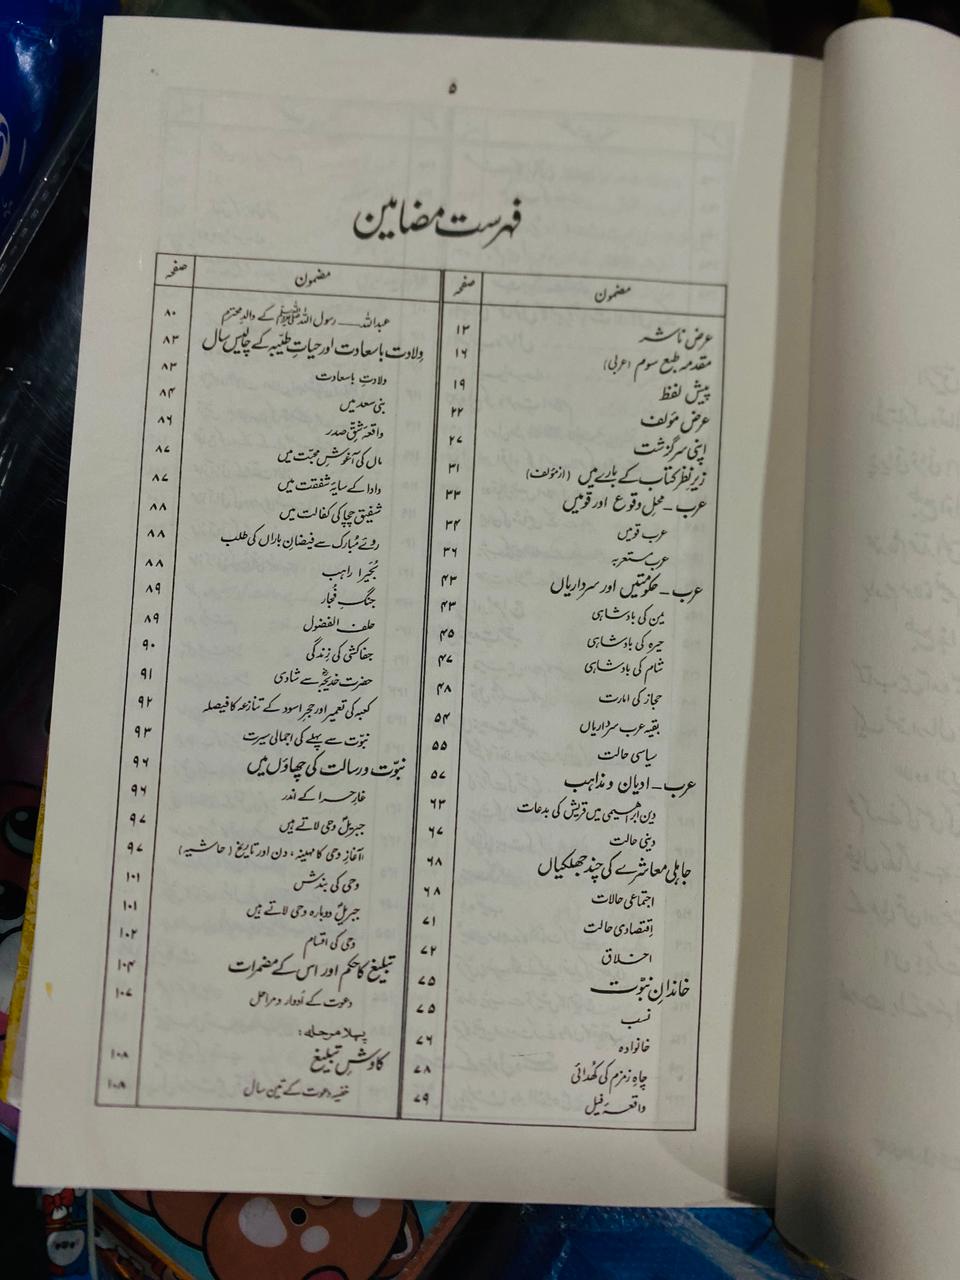 ۵
فہرست مضامین
مضمون صفحہ
عرض ناشر ۱۳
مقدمہ طبع سوم (عربی) ۱۶
پیش لفظ ۱۹
عرض مؤلف ۲۲
اپنی سرگزشت ۲۷
زیر نظر کتاب کے بارے میں (از مؤلف) ۳۱
عرب - محل وقوع اور قومیں ۳۳
عرب قومیں ۳۴
عرب مستعربہ ۳۶
عرب - حکومتیں اور سرداریاں ۴۳
یمن کی بادشاہی ۴۳
حیرہ کی بادشاہی ۴۵
شام کی بادشاہی ۴۷
حجاز کی امارت ۴۸
بقیہ عرب سرداریاں ۵۴
سیاسی حالت ۵۵
عرب - ادیان و مذاہب ۵۷
دین ابراہیمی میں قریش کی بدعات ۶۳
دینی حالت ۶۷
جاہلی معاشرے کی چند جھلکیاں ۶۸
اجتماعی حالات ۶۸
اقتصادی حالت ۷۱
اخلاق ۷۲
خاندانِ نبوت ۷۵
نسب ۷۵
خانوادہ ۷۶
چاہِ زمزم کی کھدائی ۷۸
واقعۂ فیل ۷۹
مضمون صفحہ
عبداللہ ـــ رسول اللہ ﷺ کے والد محترم ۸۰
ولادت باسعادت اور حیاتِ طیّبہ کے چالیس سال ۸۳
ولادتِ باسعادت ۸۳
بنی سعد میں ۸۴
واقعہ شقِّ صدر ۸۶
ماں کی آغوشِ محبّت میں ۸۷
دادا کے سایۂ شفقت میں ۸۷
شفیق چچا کی کفالت میں ۸۸
روئے مُبارک سے فیضانِ باراں کی طلب ۸۸
بَحِیرا راہب ۸۸
جنگِ فُجار ۸۹
حلف الفضول ۸۹
جفاکشی کی زندگی ۹۰
حضرت خدیجہؓ سے شادی ۹۱
کعبہ کی تعمیر اور حجرِ اسود کے تنازعہ کا فیصلہ ۹۲
نبوّت سے پہلے کی اجمالی سیرت ۹۳
نبوّت و رسالت کی چھاؤں میں ۹۶
غارِ حرا کے اندر ۹۶
جبریلؑ وحی لاتے ہیں ۹۷
آغازِ وحی کا مہینہ، دن اور تاریخ (حاشیہ) ۹۷
وحی کی بندش ۱۰۱
جبریلؑ دوبارہ وحی لاتے ہیں ۱۰۱
وحی کی اقسام ۱۰۲
تبلیغ کا حکم اور اس کے مضمرات ۱۰۴
دعوت کے ادوار و مراحل ۱۰۷
پہلا مرحلہ:
کاوشِ تبلیغ ۱۰۸
خفیہ دعوت کے تین سال ۱۰۸